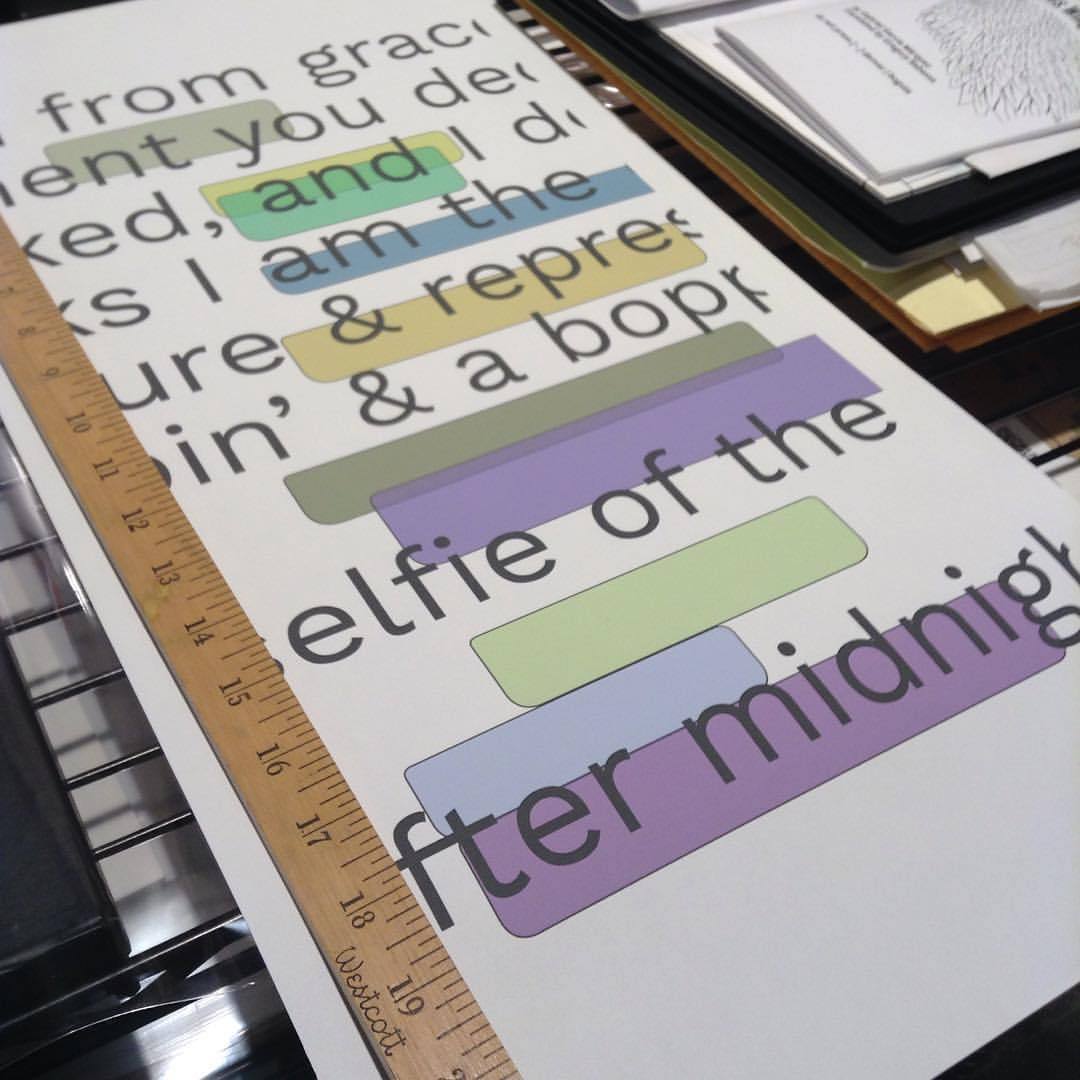 from grac
ent you de
ked, and I d
ks I am the
ure & repres
pin' & a bopp
elfie of the
fter midnigh
8
9
10
11
12
13
14
15
16
17
18
19
Westcott